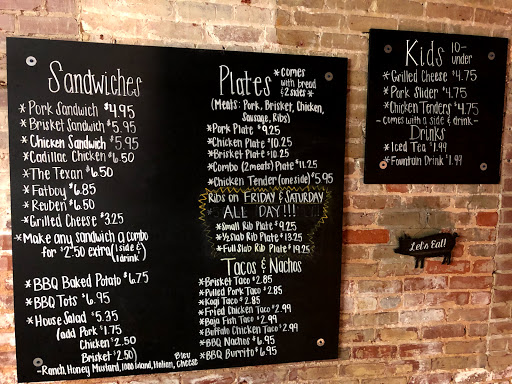 Sandwiches
*Pork Sandwich $4.95
*Brisket Sandwich $5.95
*Chicken Sandwich $5.95
*Cadillac Chicken $6.50
*The Texan $6.50
*Fatboy $6.85
*Reuben $6.50
*Grilled Cheese $3.25
*Make any sandwich a combo
for $2.50 extra (1 side & 1 drink)
*BBQ Baked Potato $6.75
*BBQ Tots $6.95
*House Salad $5.35
(add Pork $1.75
Chicken $2.50
Brisket $2.50)
-Ranch, Honey Mustard, 1000 Island, Italian, Bleu Cheese
Plates
*comes with bread & 2 sides*
(Meats: Pork, Brisket, Chicken,
Sausage, Ribs)
*Pork Plate $9.25
*Chicken Plate $10.25
*Brisket Plate $10.25
*Combo (2 meats) Plate $11.25
*Chicken Tender (one side) $5.95
Ribs on FRIDAY & SATURDAY
ALL DAY!!!
*Small Rib Plate $9.25
*½ Slab Rib Plate $13.25
*Full Slab Rib Plate $19.25
Tacos & Nachos
*Brisket Taco $2.85
*Pulled Pork Taco $2.85
*Kogi Taco $2.85
*Fried Chicken Taco $2.99
*Baja Fish Taco $2.99
*Buffalo Chicken Taco $2.99
*BBQ Nachos $6.95
*BBQ Burrito $6.95
Kids 10-under
*Grilled Cheese $4.75
*Pork Slider $4.75
*Chicken Tenders $4.75
-comes with a side & drink-
Drinks
*Iced Tea $1.99
*Fountain Drink $1.99
Let's Eat!